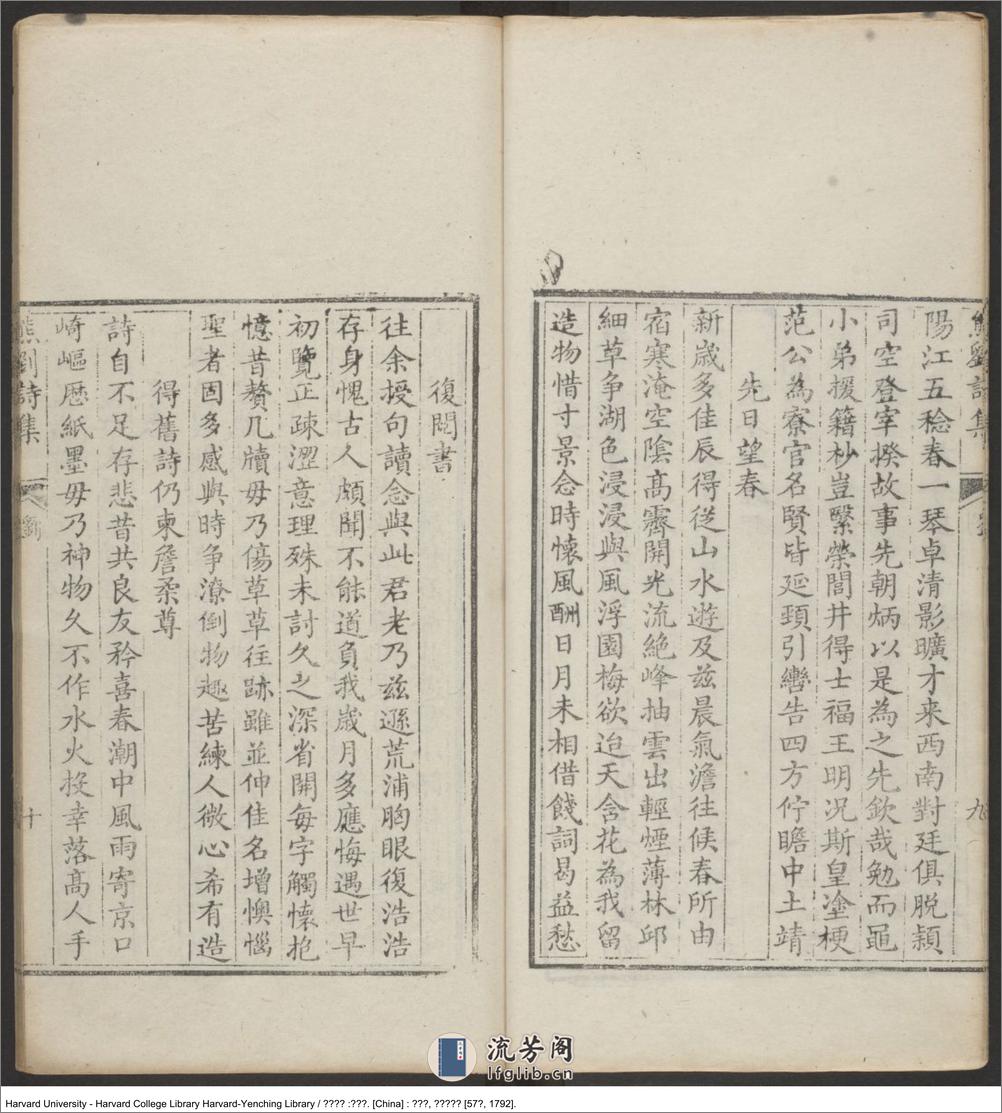 熊劉詩集
九
陽江五稔春一琴卓清影曠才来西南對廷俱脫潁
司空登宰揆故事先朝炳以是為之先欽哉勉而黽
小弟援籍杪豈繄榮閭井得士福王明况斯皇塗梗
范公為寮官名賢皆延頸引轡告四方佇瞻中土靖
先日望春
新歲多佳辰得從山水遊及兹晨氣澹往候春所由
宿寒淹空隂髙霽開光流絶峰抽雲出輕煙薄林邱
細草争湖色浸浸與風浮園梅欲迨天含花為我留
造物惜寸景念時懷風酬日月未相借餞詞曷益愁
復閱書
往余授句讀念與此君老乃兹遜荒浦胸眼復浩浩
存身愧古人頗聞不能道負我歲月多應悔遇世早
初覽正疎澀意理殊未討久之深省開每字觸懷抱
憶昔贅几牘毋乃傷草草往跡雖並伸佳名增懊惱
聖者固多感與時争潦倒物趣苦練人微心希有造
得舊詩仍柬詹柔尊
詩自不足存悲昔共良友矜喜春潮中風雨寄京口
崎嶇歷紙墨毋乃神物久不作水火投幸落髙人手
熊劉詩集
劉
十
流芳阁
lfglib.cn
Harvard University - Harvard College Library Harvard-Yenching Library / ???? :???. [China] : ???, ????? [57?, 1792].